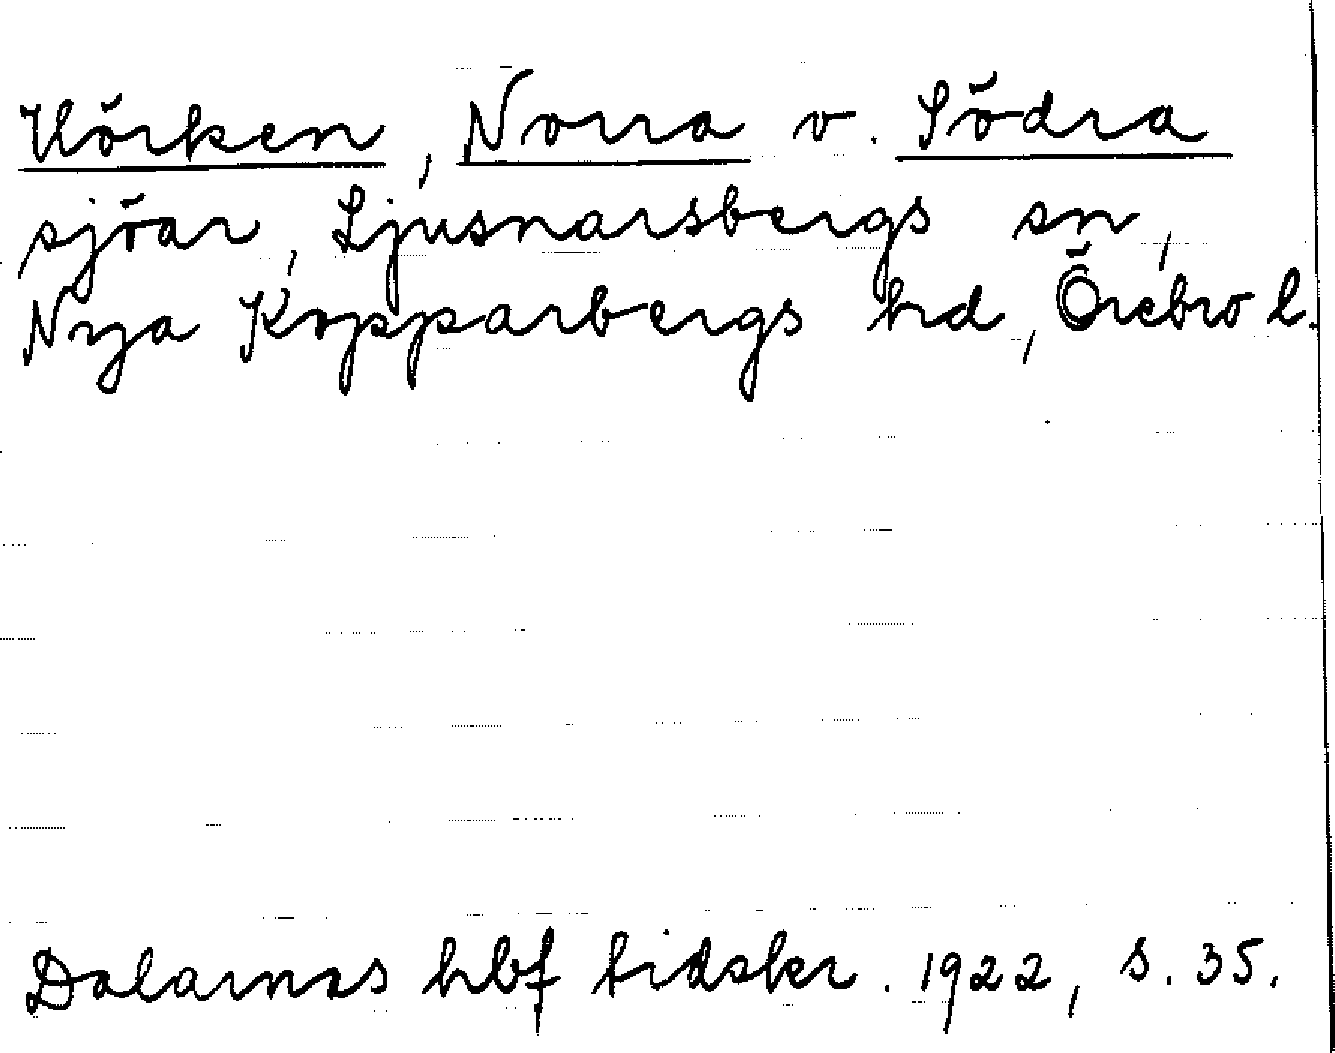 Hörken, Norra o. Södra
sjöar, Ljusnarsbergs sn,
Nya Kopparbergs hd, Örebro l.
Dalarnas hbf tidskr. 1922, s. 35.